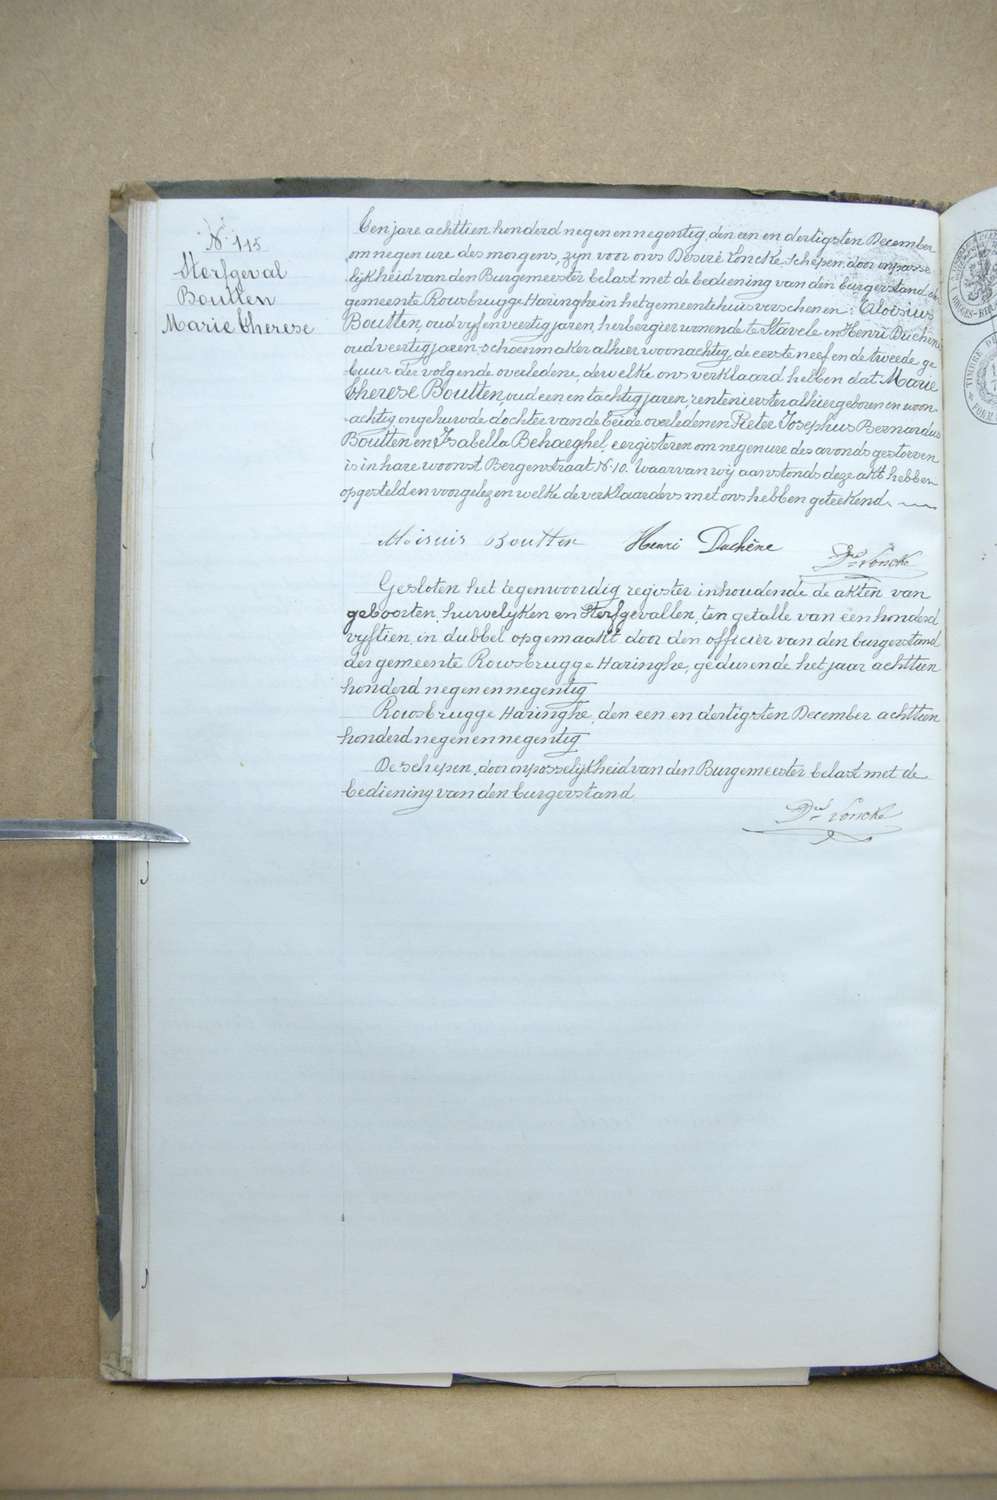 N° 115
Sterfgeval
Boutten
Marie Therese
Ten jare achttien honderd negen en negentig, den een en dertigsten December
om negen ure des morgens, zyn voor ons Désiré Loncke, schepen, door onpasse
lijkheid van den Burgemeester belast met de bediening van den burgerstand der
gemeente Rousbrugge Haringhe in het gemeentehuis verschenen: Aloisius
Boutten, oud vyf en veertig jaren, herbergier wonende te Stavele en Henri Duchêne
oud veertig jaren schoenmaker alhier woonachtig, de eerste neef en de tweede ge
buur der volgende overledene, dewelke ons verklaard hebben dat Marie
Therese Boutten, oud een en tachtig jaren, rentenierster alhier geboren en woon
achtig ongehuwde dochter van de beide overledenen Pieter Josephus Bernardus
Boutten en Isabella Behaeghel, eergisteren om negen ure des avonds gestorven
is in hare woonst Bergenstraat N° 10. Waarvan wij aanstonds deze akt hebben
opgesteld en voorgelezen welke de verklaarders met ons hebben geteekend.
Aloisuis Boutten Henri Duchêne Dré Loncke
Gesloten het tegenwoordig register inhoudende de akten van
geboorten, huwelyken en sterfgevallen, ten getalle van een honderd
vyftien, in dubbel opgemaakt door den officier van den burgerstand
der gemeente Rousbrugge Haringhe, gedurende het jaar achttien
honderd negen en negentig
Rousbrugge Haringhe, den een en dertigsten December achttien
honderd negen en negentig
De schepen, door onpasselijkheid van den Burgemeester belast met de
bediening van den burgerstand
Dré Loncke
TIMBRE